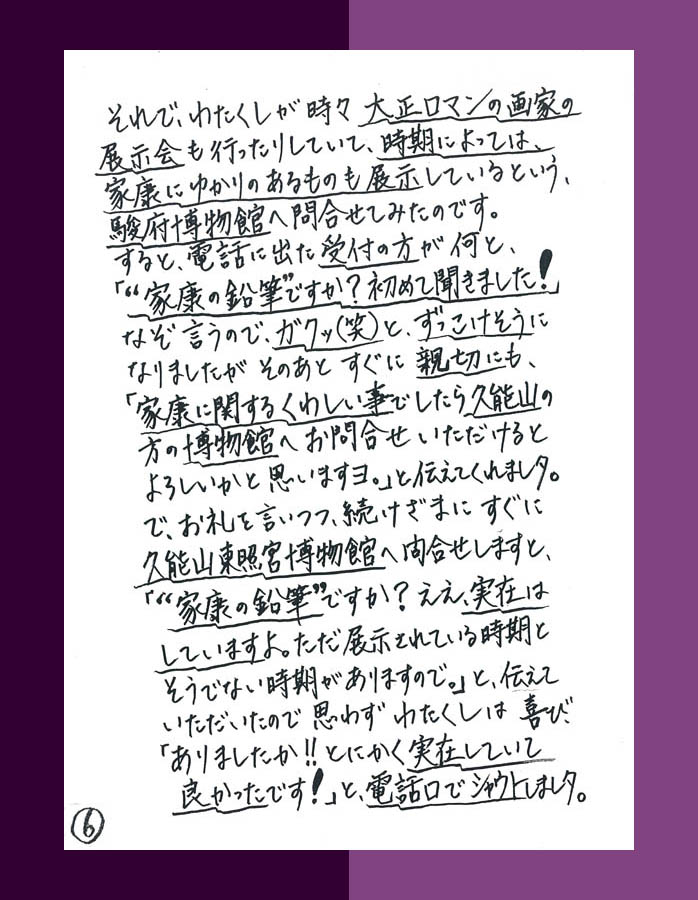 それで、わたくしが時々大正ロマンの画家の
展示会も行ったりしていて、時期によっては、
家康にゆかりのあるものも展示しているという、
駿府博物館へ問合せてみたのです。
すると、電話に出た受付の方が何と、
「“家康の鉛筆”ですか？初めて聞きました！」
なぞ言うので、ガクッ(笑)と、ずっこけそうに
なりましたがそのあとすぐに親切にも、
「家康に関するくわしい事でしたら久能山の
方の博物館へお問合せいただけると
よろしいかと思いますヨ。」と伝えてくれましタ。
で、お礼を言いつつ、続けざまにすぐに
久能山東照宮博物館へ問合せしますと、
「“家康の鉛筆”ですか？ええ、実在は
していますよ。ただ展示されている時期と
そうでない時期がありますので。」と、伝えて
いただいたので思わずわたくしは喜び、
「ありましたか!!とにかく実在していて
良かったです！」と、電話口でシャウトしましタ。
⑥